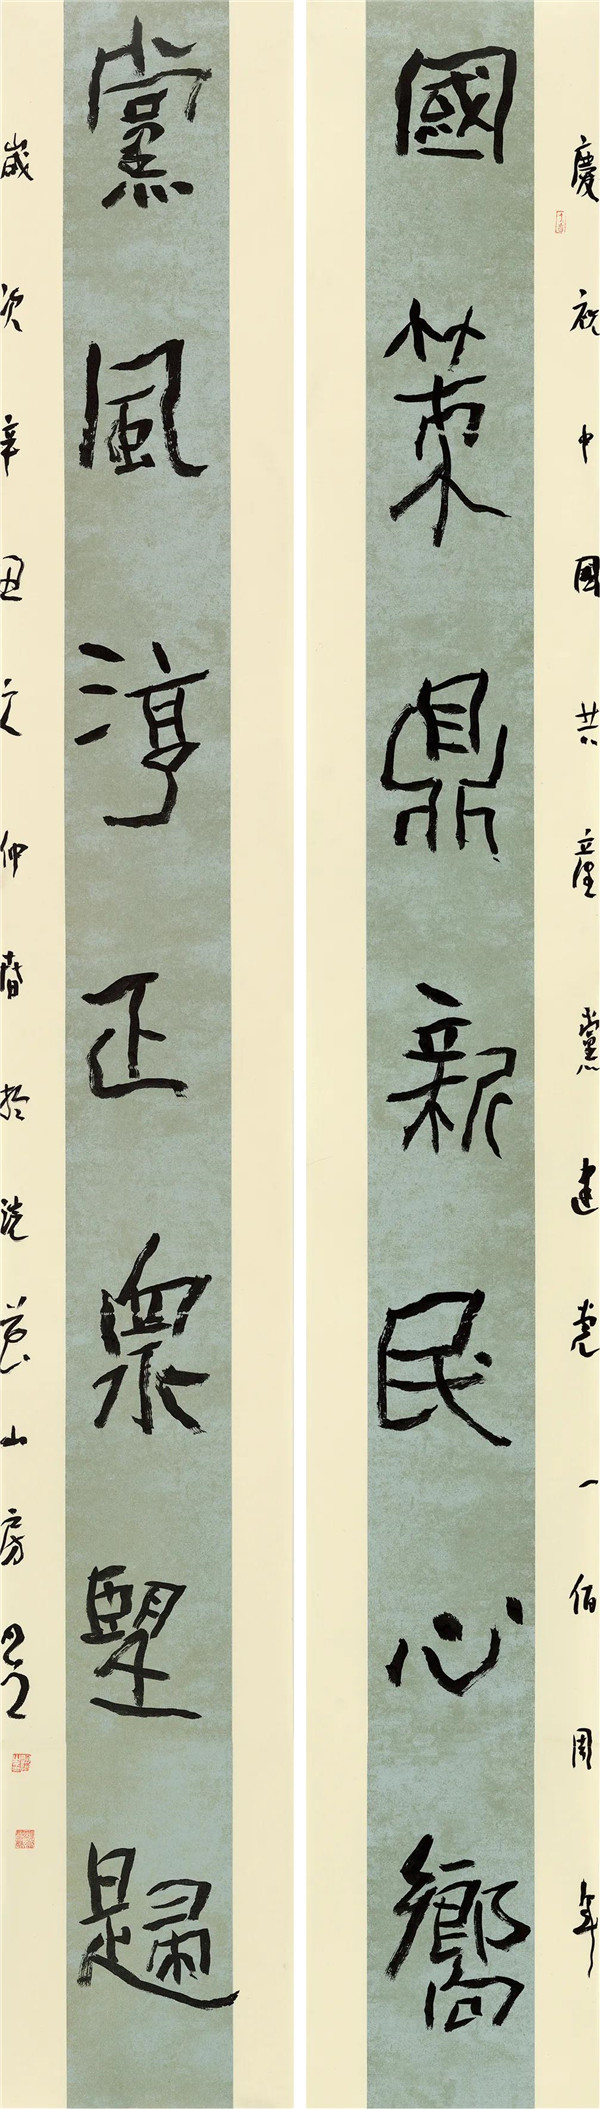 慶祝中國共產黨建党一佰周年
國策鼎新民心嚮
黨風淳正眾望歸
歲次辛丑之仲春於洗
山房